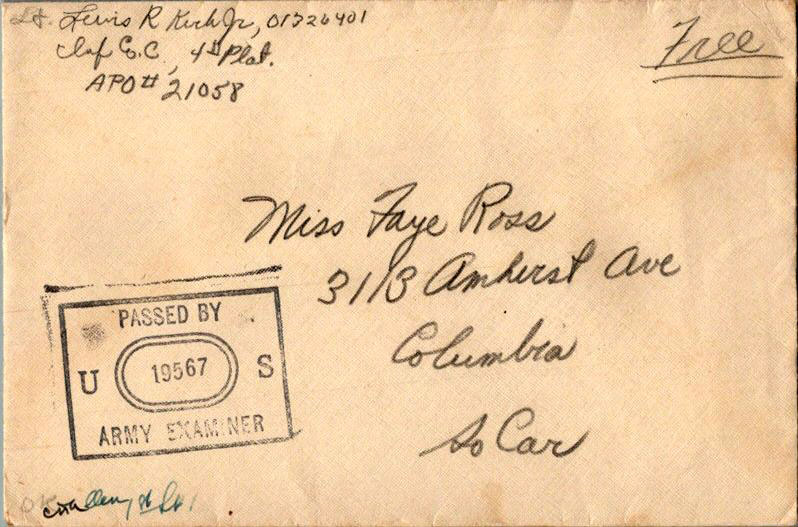 Lt. Lewis R Kirk Jr, 01326401
4th Plat.
APO# 21058
Free
Miss Faye Ross
3113 Amherst Ave
Columbia
So Car
PASSED BY
U 19567 S
ARMY EXAMINER